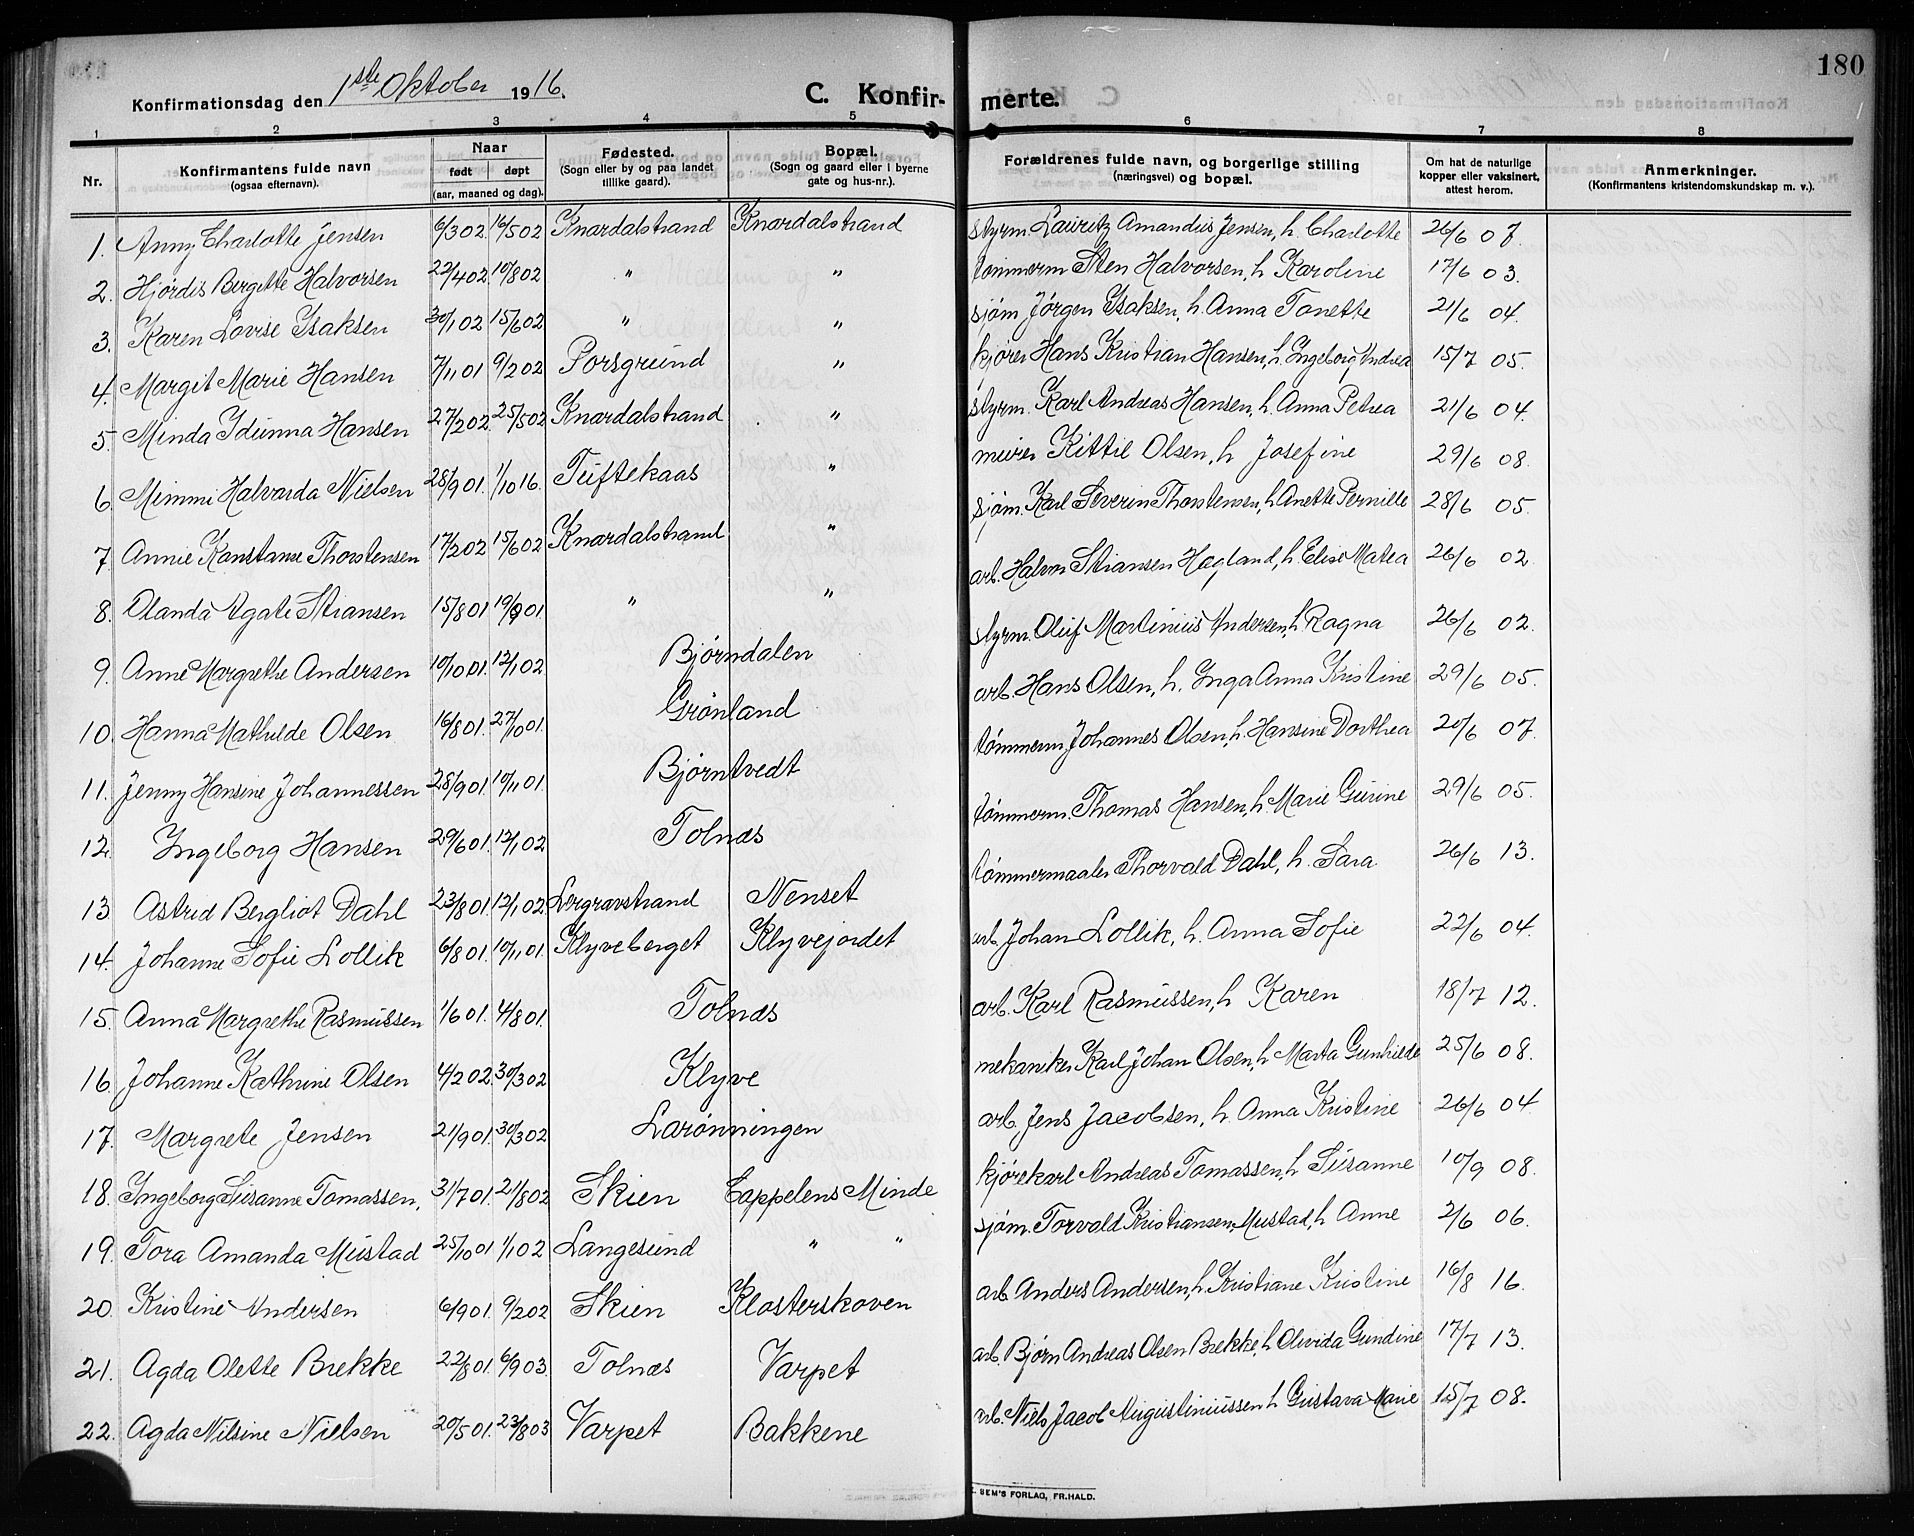 180
Konfirmationsdag den 1ste Oktober 1916.
C. Konfirmerte.
1 2 3 4 5 6 7 8
Nr.
Konfirmantens fulde navn (ogsaa efternavn).
Naar
født døpt
(aar, maaned og dag).
Fødested. (Sogn eller by og paa landet tillike gaard).
Bopæl. (Sogn og gaard eller i byerne gate og hus-nr.).
Forældrenes fulde navn, og borgerlige stilling (næringsvei) og bopæl.
Om hat de naturlige kopper eller vaksinert, attest herom.
Anmerkninger. (Konfirmantens kristendomskundskap m. v.).
1. Anny Charlotte Jensen 6/3 02. 16/5 02 Knardalstrand Knardalstrand styrm. Lauritz Amandus Jensen, h. Charlotte 26/6 07.
2. Hjørdis Bergitte Halvorsen 22/4 02 10/8 02 " " tømmerm Sten Halvorsen, h Karoline 17/6 03.
3. Karen Lovise Isaksen 30/1 02 15/6 02 " " sjøm Jørgen Isaksen, h. Anna Tonette 21/6 04.
4. Margit Marie Hansen 7/11 01 9/2 02 Porsgrund " kjører Hans Kristian Hansen, h. Ingeborg Andrea 15/7 05.
5. Minda Idunna Hansen 27/2 02. 25/5 02 Knardalstrand " styrm. Karl Andreas Hansen, h. Anna Petrea 21/6 04.
6. Mimmi Halvarda Nielsen 28/9 01. 1/10 16. Tuftekaas " meier Kittil Olsen, h Josefine 29/6 08.
7. Annie Konstanse Thorstensen 17/2 02 15/6 02 Knardalstrand " sjøm. Karl Severin Thorstensen, h Anette Pernille 28/6 05.
8. Olanda Agate Stiansen 15/8 01 19/9 01 " " arb. Halvor Stiansen Hægland, h. Elise Matea 26/6 02
9. Anne Margrethe Andersen 10/10 01 12/1 02 Bjørndalen styrm. Oluf Martinius Andersen, h Ragna 26/6 02.
10. Hanna Mathilde Olsen 16/8 01. 27/10 01. Grønland arb. Hans Olsen, h. Inga Anna Kristine 29/6 05.
11. Jenny Hansine Johannessen 28/9 01. 10/11 01. Bjørntvedt tømmerm Johannes Olsen, h. Hansine Dorthea 20/6 07.
12. Ingeborg Hansen 29/6 01. 12/1 02 Tolnæs tømmerm. Thomas Hansen, h. Marie Gurine 29/6 05.
13 Astrid Bergliot Dahl 23/8 01. 12/1 02 Lergravstrand Nenset tømmermaaler Thorvald Dahl, h. Sara 26/6 13.
14. Johanne Sofie Lollik 6/8 01. 10/11 01. Klyveberget Klyvejordet arb. Johan Lollik, h. Anna Sofie 22/6 04.
15. Anna Margrethe Rasmussen 1/6 01. 4/8 01. Tolnæs arb. Karl Rasmussen, h Karen 18/7 12.
16. Johanne Kathrine Olsen 4/2 02. 30/3 02 Klyve mekaniker Karl Johan Olsen, h Marta Gunhilde 25/6 08.
17. Margrete Jensen 21/9 01. 30/3 02 Larønningen arb. Jens Jacobsen, h. Anna Kristine 26/6 04.
18. Ingeborg Susanne Tomassen. 31/7 01. 21/8 02 Skien Cappelens Minde kjørekarl Andreas Tomassen, h Susanne 10/9 08.
19. Tora Amanda Mustad 25/10 01 1/1 02 Langesund " " sjøm. Torvald Kristiansen Mustad, h Anne 2/6 06.
20. Kristine Andersen 6/9 01. 9/2 02 Skien Klosterskoven arb. Anders Andersen, h. Kristiane Kristine 16/8 16.
21. Agda Olette Brekke 22/8 01. 6/9 03. Tolnæs Varpet arb. Bjørn Andreas Olsen Brekke, h Olivida Gundine 17/7 13.
22. Agda Nilsine Nielsen 20/5 01. 23/8 03 Varpet Bakkene arb. Niels Jacob Augustinussen h Gustava Marie 15/7 08.
SEM'S FORLAG, FR.HALD.